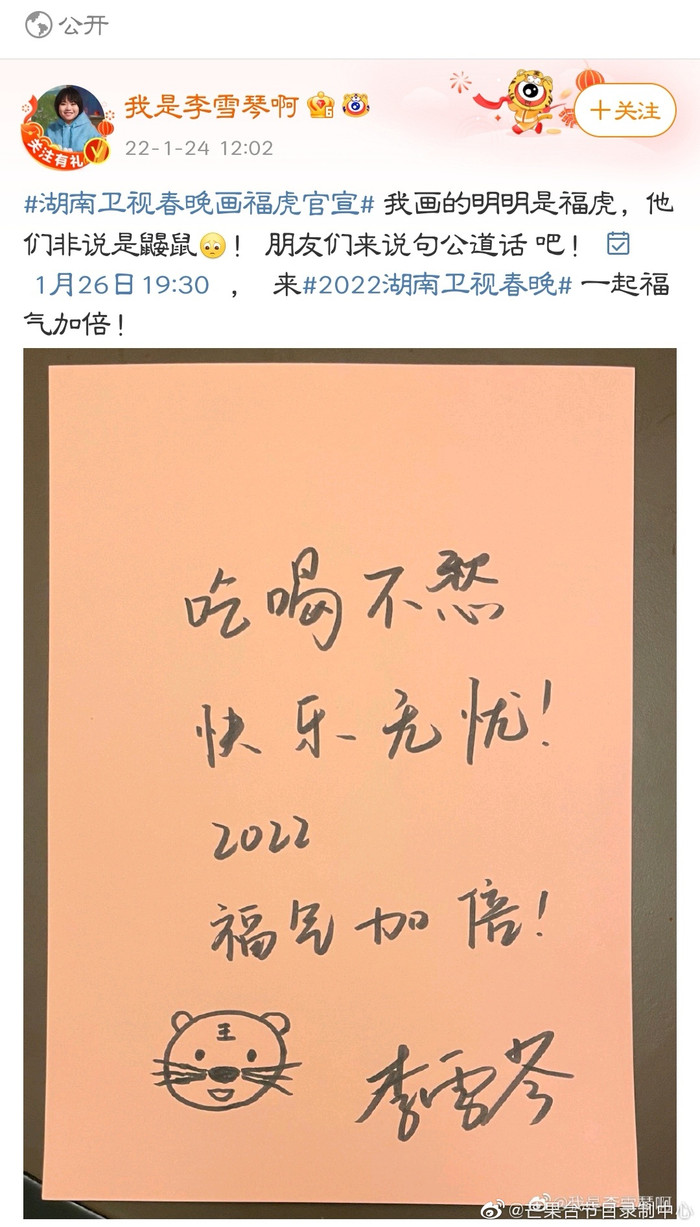 公开
我是李雪琴啊
关注有礼
十关注
22-1-24 12:02
#湖南卫视春晚画福虎官宣# 我画的明明是福虎，他
们非说是鼹鼠🥺！ 朋友们来说句公道话 吧！
1月26日 19:30 ， 来#2022湖南卫视春晚# 一起福
气加倍！
吃喝不愁
快乐无忧！
2022
福气加倍！
王
李雪琴
@我是李雪琴啊
@芒果台节目录制中心